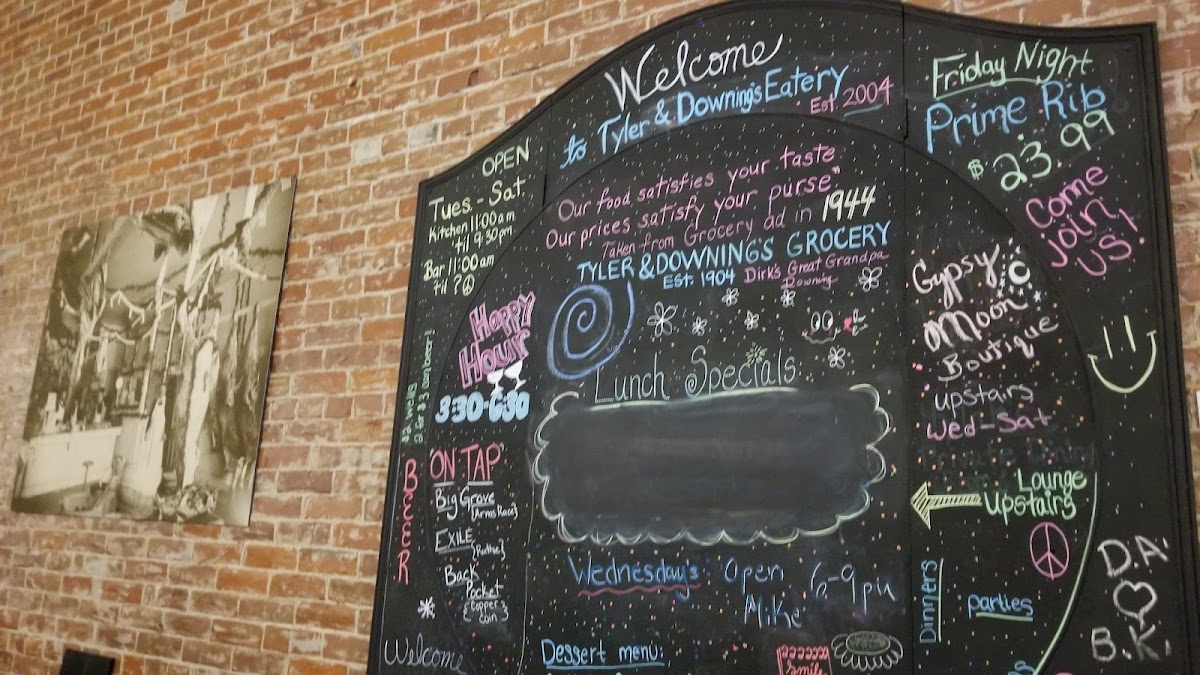 Welcome
to Tyler & Downing's Eatery
Est 2004
OPEN
Tues.-Sat.
Kitchen 11:00am
til 9:30pm
Bar 11:00am
til?
HAPPY
HOUR
3:30-6:30
$2 wells
2 for $3 can beer!
BEEEER
"ON TAP"
Big Grove
{Arms Race}
EXILE
{Ruthie}
Back
Pocket
{Copper
coin}
Welcome
Our food satisfies your taste
Our prices satisfy your purse"
Taken from Grocery ad in 1944
TYLER & DOWNING'S GROCERY
EST. 1904 Dirk's Great Grandpa
Downing
Lunch Specials
Wednesday's: Open 6-9pm
Mike
Dessert menu:
Smile
Friday Night
Prime Rib
$23.99
Come
join
us!
Gypsy
Moon
Boutique
upstairs
Wed-Sat
Lounge
Upstairs
Dinners
parties
D.A.
B.K.